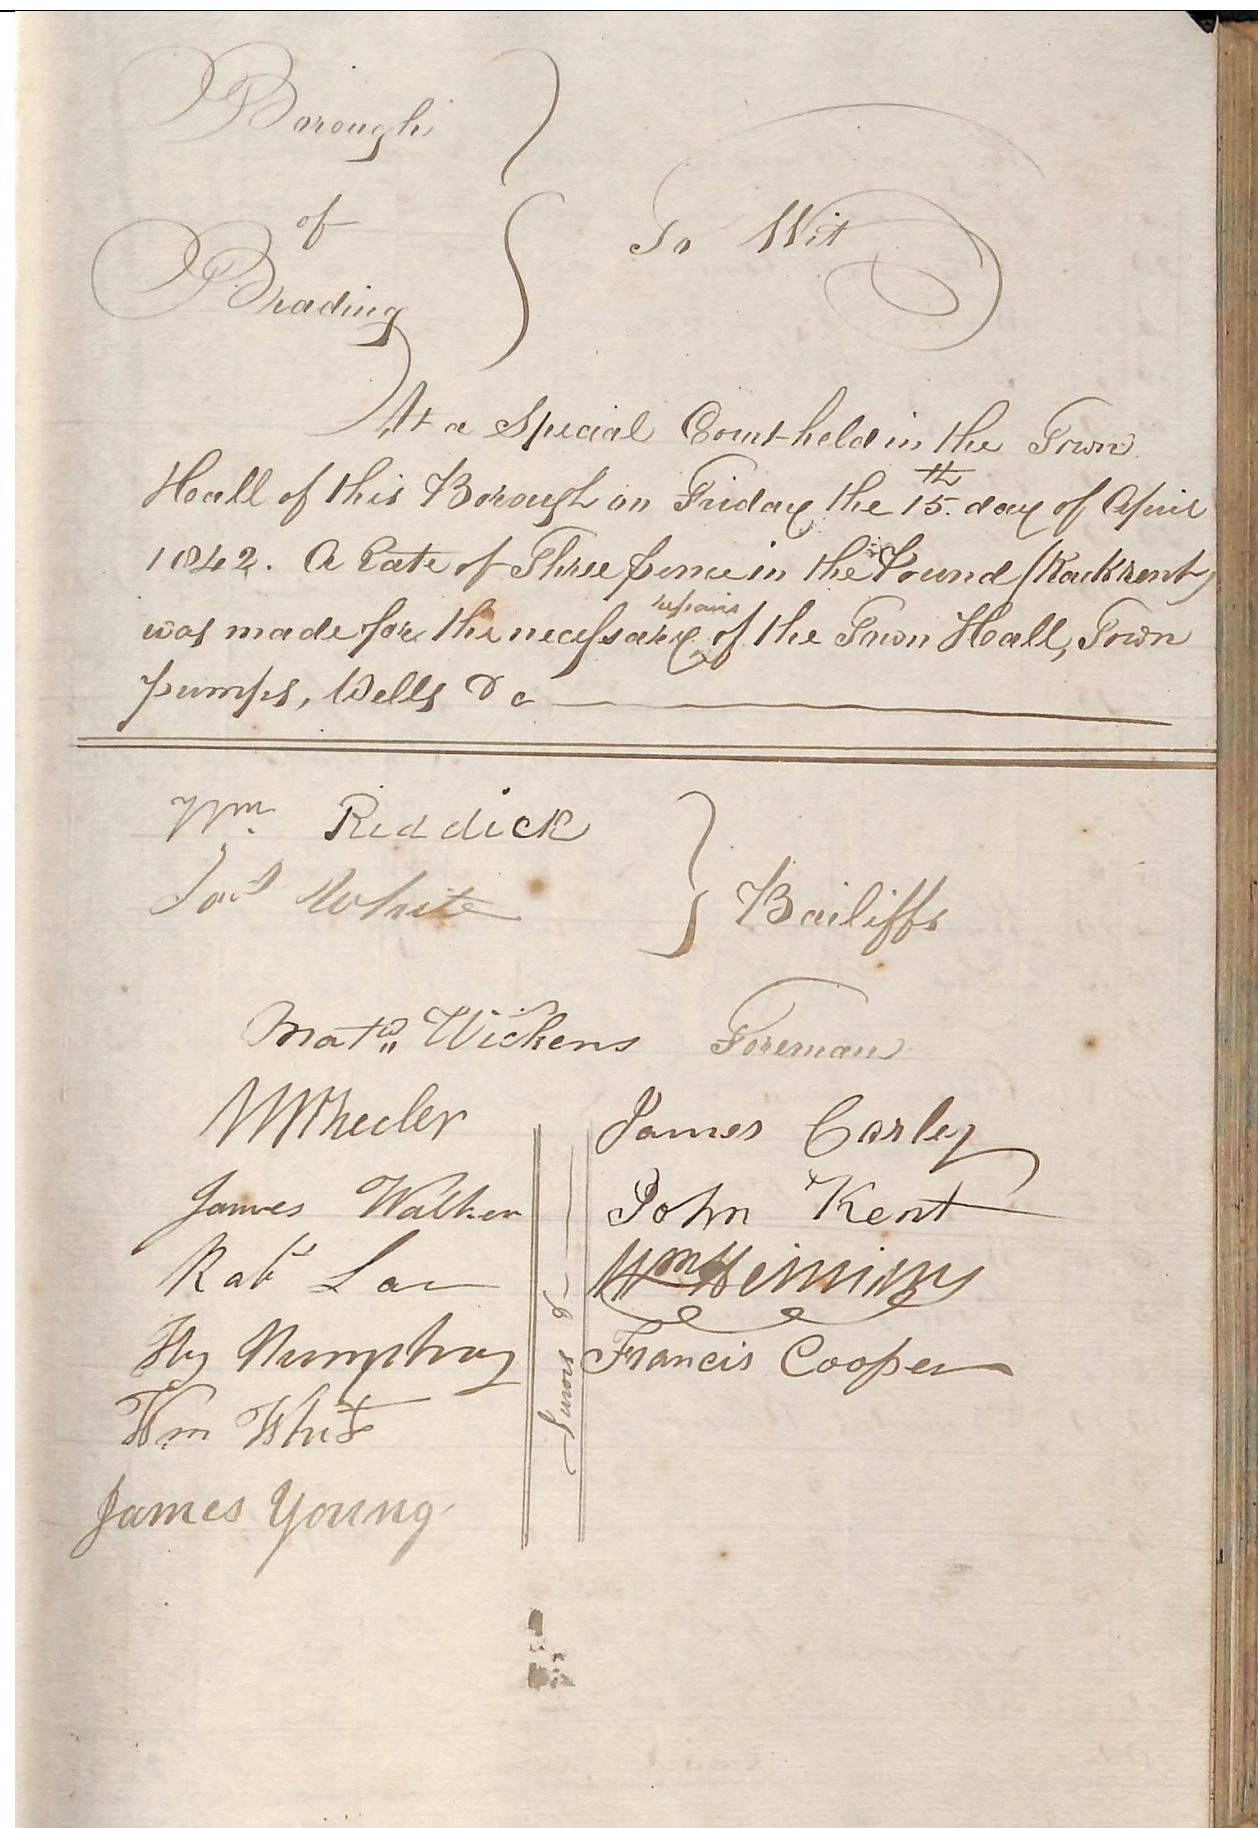 Borough
of
Brading
To Wit
At a Special Court held in the Town
Hall of this Borough on Friday the 15th day of April
1842. A Rate of Three pence in the Pound (Rack rent)
was made for the necessary repairs of the Town Hall, Town
pumps, Wells &c
Wm. Riddick
Jas White
Bailiffs
Matw Wickens Foreman
W Wheeler
James Walker
Robt Law
Hy Humphray
Wm White
James Young
Jurors
James Corley
John Kent
Wm
Francis Cooper